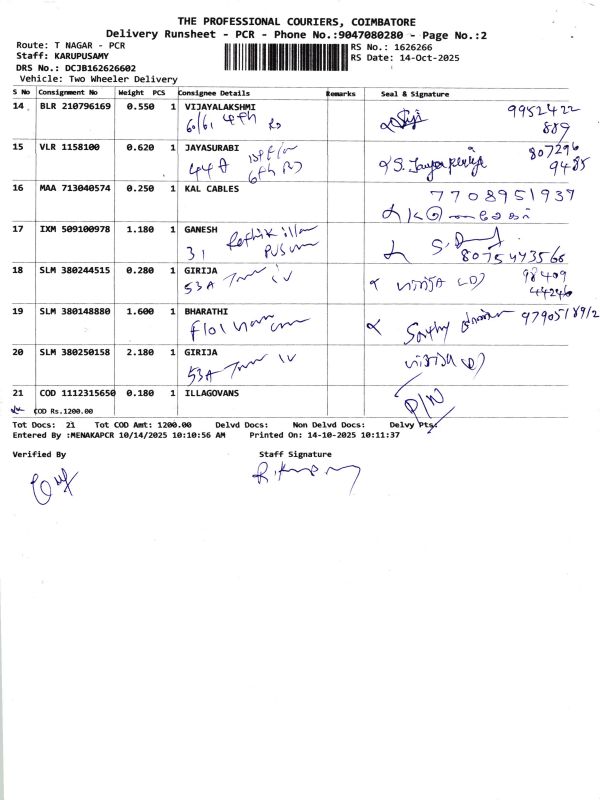 THE PROFESSIONAL COURIERS, COIMBATORE
Delivery Runsheet - PCR - Phone No.:9047080280 - Page No.:2
Route: T NAGAR - PCR
RS No.: 1626266
Staff: KARUPUSAMY
RS Date: 14-Oct-2025
DRS No.: DCJB162626602
Vehicle: Two Wheeler Delivery
S No Consignment No Weight PCS Consignee Details Remarks Seal & Signature
14 BLR 210796169 0.550 1 VIJAYALAKSHMI 9952422
60/61 4th Rd 889
15 VLR 1158100 0.620 1 JAYASURABI 807296
44A 1st flor 9485
6th RD
16 MAA 713040574 0.250 1 KAL CABLES 7708951939
17 IXM 509100978 1.180 1 GANESH
31 8075473566
18 SLM 380244515 0.280 1 GIRIJA 98409
53A IV கிரிஜா 44246
19 SLM 380148880 1.600 1 BHARATHI
F101
20 SLM 380250158 2.180 1 GIRIJA
53A IV கிரிஜா
21 COD 1112315650 0.180 1 ILLAGOVANS P/N
COD Rs.1200.00
Tot Docs: 21 Tot COD Amt: 1200.00 Delvd Docs: Non Delvd Docs: Delvy Pts:
Entered By :MENAKAPCR 10/14/2025 10:10:56 AM Printed On: 14-10-2025 10:11:37
Verified By Staff Signature